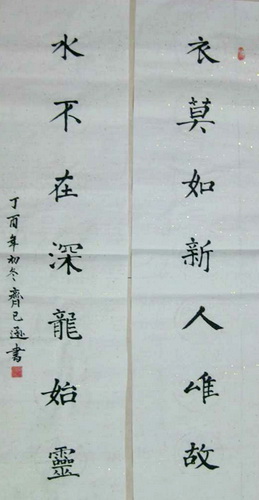 衣莫如新人唯故
水不在深龍始靈
丁酉年初冬齊已逊書